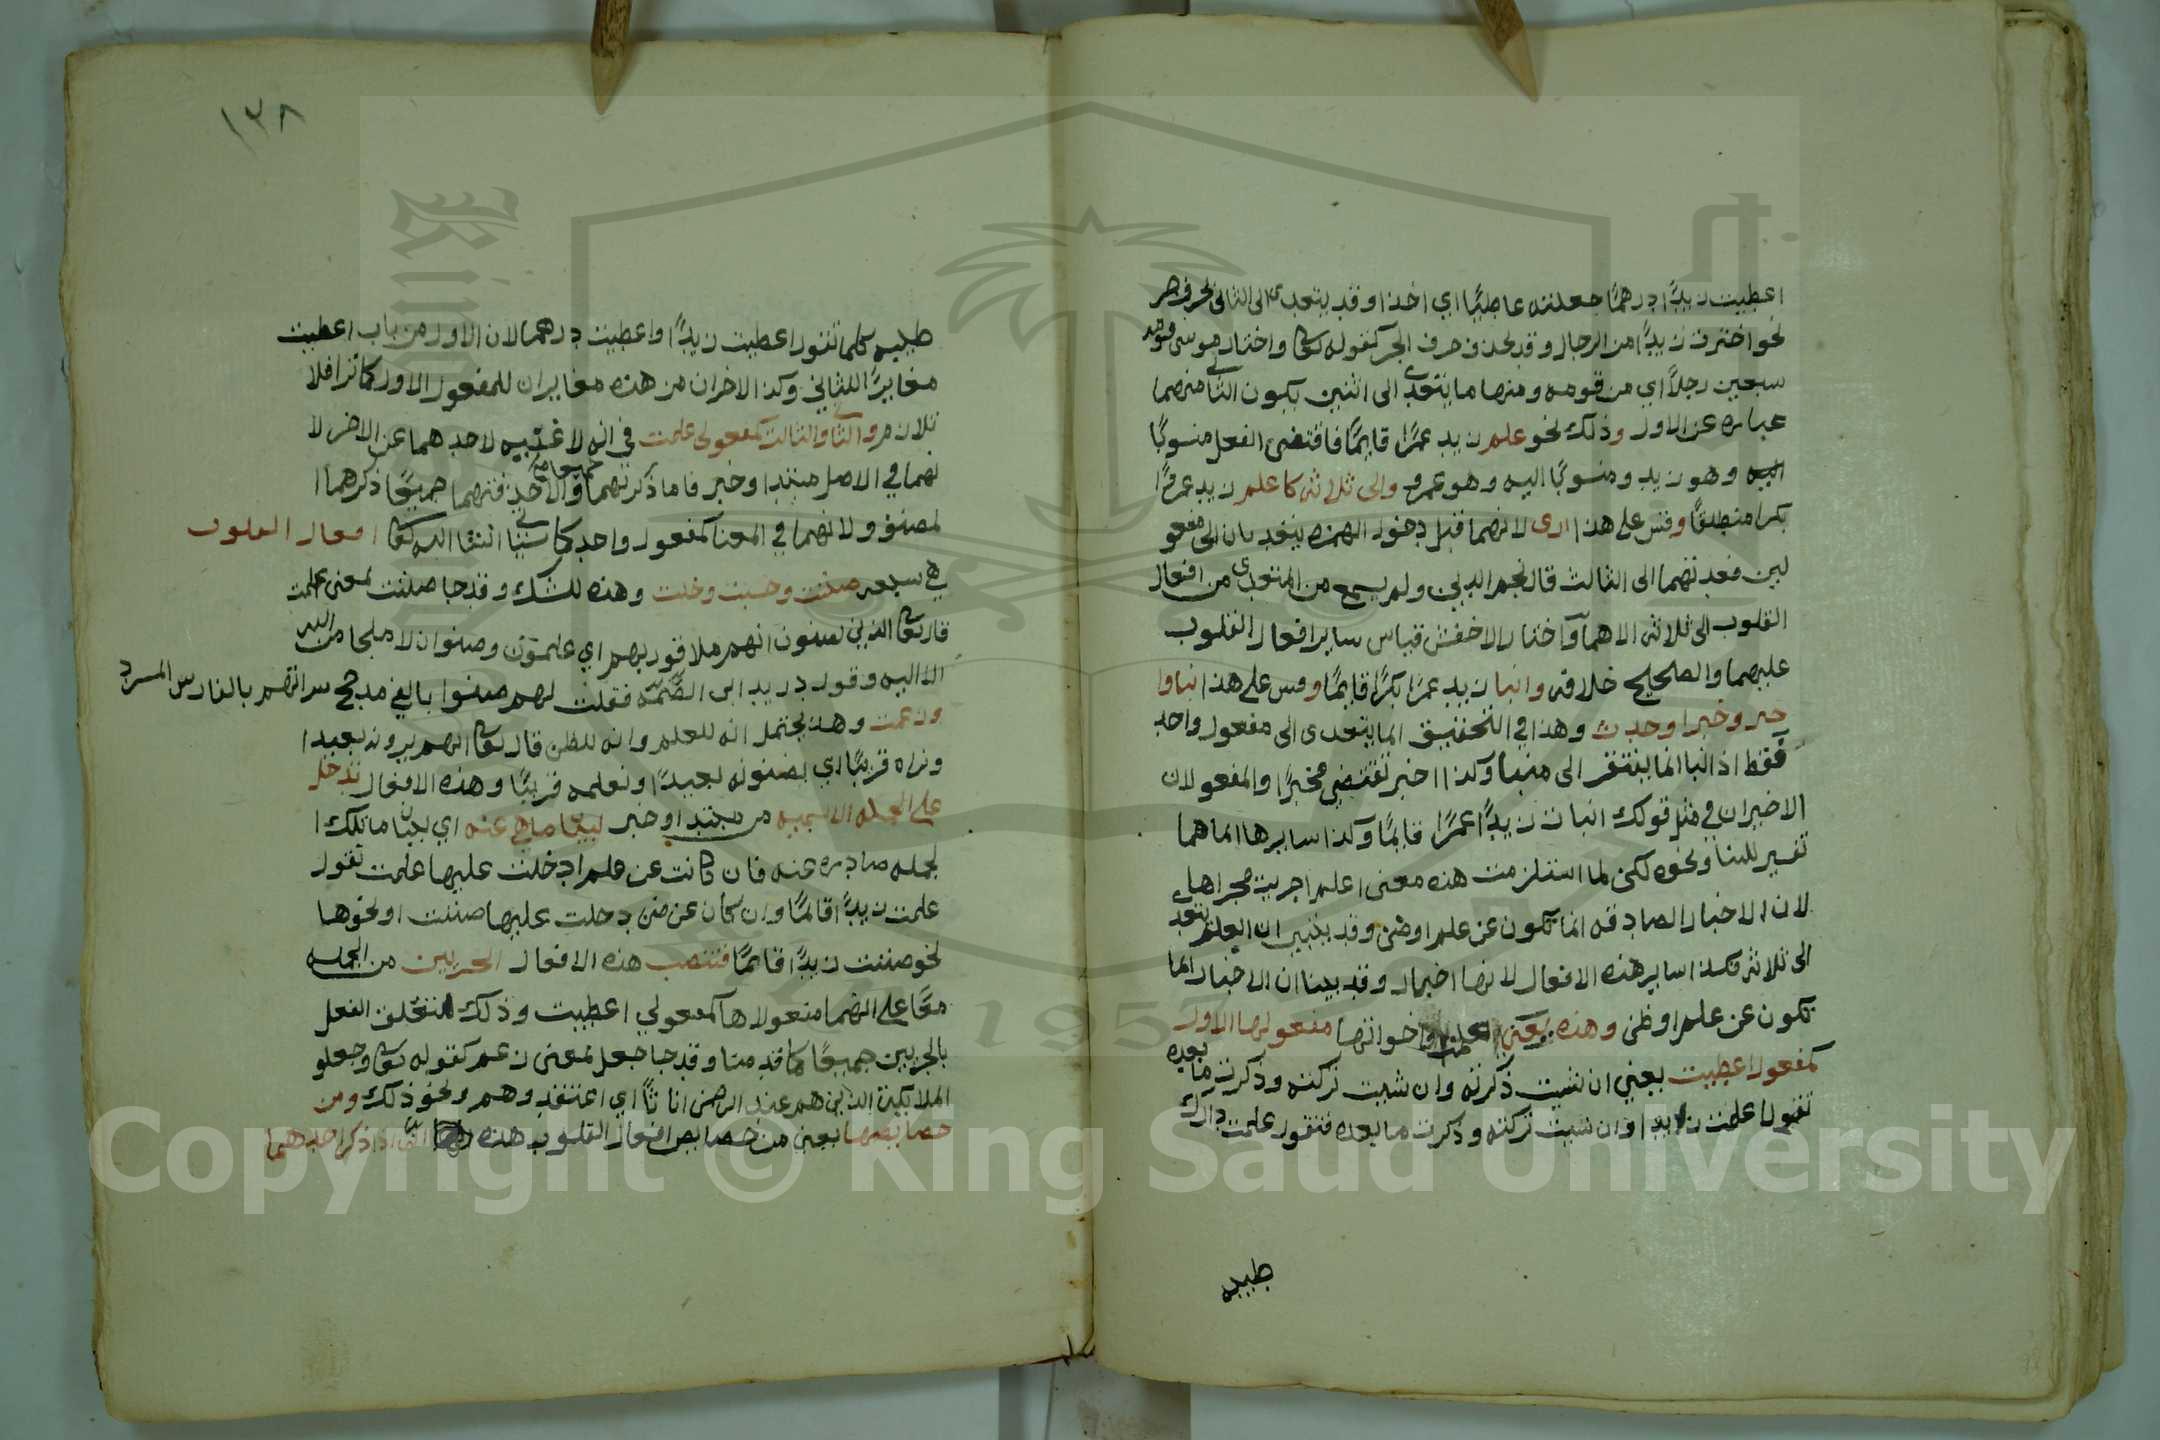 اعطيت زيدًا درهمًا جعلته عاطيًا اي اخذا وقد يتعدى الى الثاني بحرف جر
نحو اخترت زيدًا من الرجال وقد يحذف حرف الجر كقوله تعالى واختار موسى قومه
سبعين رجلاً اي من قومه ومنها ما يتعدى الى اثنين يكون الثاني منهما
عباره عن الاول وذلك نحو علم زيد عمرًا قايمًا فاقتضى الفعل منسوبًا
اليه وهو زيد ومنسوبًا اليه وهو عمرو والى ثلاثه كاعلم زيد عمرًا
بكرا منطلقًا وقس على هذا ارى لانهما قبل دخول الهمزه يتعديان الى مفعو
لين فعدتهما الى الثالث قال نجم الدين ولم يسمع من المتعدى من افعال
القلوب الى ثلاثه الا هما واختار الاخفش قياس ساير افعال القلوب
عليهما والصحيح خلافه وانبا زيد عمرًا بكرًا قايمًا وقس على هذا نبا وا
خبر وخبر وحدث وهذا في التحقيق انما يتعدى الى مفعول واحد
فقط اذ انبا انما يفتقر الى منبا وكذا اخبر تقتضي مخبرًا والمفعولان
الاخيران في مثل قولك انبات زيدًا عمرًا قايمًا وكذا سايرها انما هما
تفسير للنبا ونحوه لكن لما استلزمت هذه معنى اعلم اجريت مجراها
لان الاخبار الصادقه انما تكون عن علم اوظن وقد بينا ان العلم يتعدى
الى ثلاثه فكذا ساير هذه الافعال لانها اخبار وقد بينا ان الاخبار انما
تكون عن علم اوظن وهذه يعني اعلم واخواتها مفعولها الاول
كمفعول اعطيت يعني ان شيت ذكرته وان شيت تركته وذكرت ما بعده
تقول اعلمت زيدا وان شيت تركته وذكرت ما بعده فتقول علمت دارك
طيبه
١٣٨
طيبه كما تقول اعطيت زيدًا واعطيت درهما لان الاول من باب اعطيت
مغايرًا للثاني وكذا الاخران من هذه مغايران للمفعول الاول كما ترا فلا
تلازم والثاني والثالث كمفعولى علمت في انه لا غنيه لاحدهما عن الاخر لا
نهما في الاصل مبتدا وخبر فاما ذكرتهما جميعا والا حذفتهما جميعًا ذكرهما
لمصنف ولانهما في المعنا كمفعول واحد كما سياتي ان شا الله تعالى افعال القلوب
هي سبعه ظننت وحسبت وخلت وهذه للشك وقد جا ظننت بمعنى علمت
قال تعالى الذين يظنون انهم ملاقوا ربهم اي علموا وظنوا ان لا ملجا من الله
الا اليه وقول دريد ابن الصمه فقلت لهم ظنوا بالفي مدجج سراتهم بالفارسي المسرد
وزعمت وهذه يحتمل انه للعلم وانه للظن قال تعالى انهم يرونه بعيدا
ونراه قريبًا اي يظنونه بعيدًا ونعلمه قريبًا وهذه الافعال تدخل
على الجمله الاسميه من مبتدا وخبر لبيان ما هي عنه اي بيان ما تلك ا
لجمله صادره عنه فان كانت عن علم ادخلت عليها علمت تقول
علمت زيدًا قايمًا وان كان عن ظن دخلت عليها ظننت اونحوها
نحو ظننت زيدًا قايمًا فتنصب هذه الافعال الجزيين من الجمله
معًا على انهما مفعولاها كمفعولي اعطيت وذلك لتعلق الفعل
بالجزيين جميعًا كما قدمنا وقد جا جعل بمعنى زعم كقوله تعالى وجعلو
الملايكة الذين هم عند الرحمن اناثًا اي اعتقدوهم ونحو ذلك ومن
خصايصها يعني من خصايص افعال القلوب هذه انه اذا ذكر احدهما
Copyright © King Saud University
1957